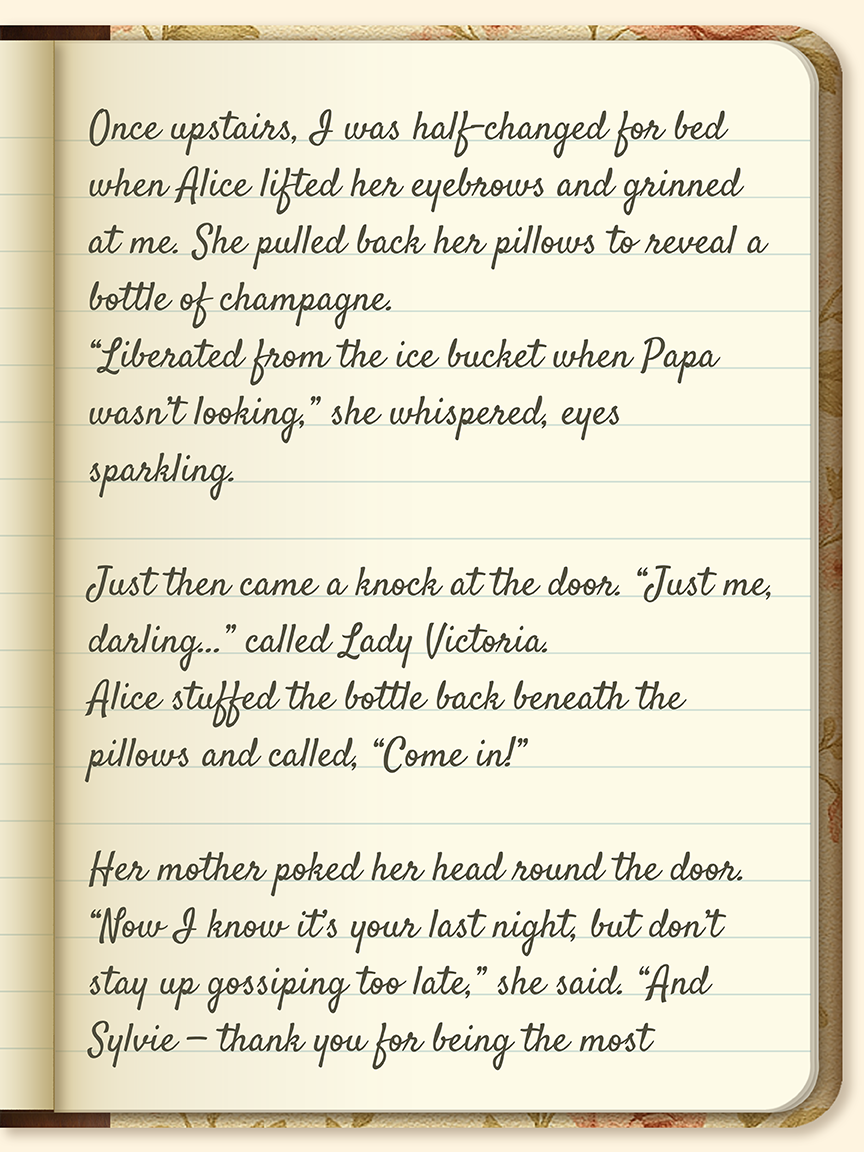 Once upstairs, I was half-changed for bed
when Alice lifted her eyebrows and grinned
at me. She pulled back her pillows to reveal a
bottle of champagne.
“Liberated from the ice bucket when Papa
wasn’t looking,” she whispered, eyes
sparkling.
Just then came a knock at the door. “Just me,
darling...” called Lady Victoria.
Alice stuffed the bottle back beneath the
pillows and called, “Come in!”
Her mother poked her head round the door.
“Now I know it’s your last night, but don’t
stay up gossiping too late,” she said. “And
Sylvie – thank you for being the most